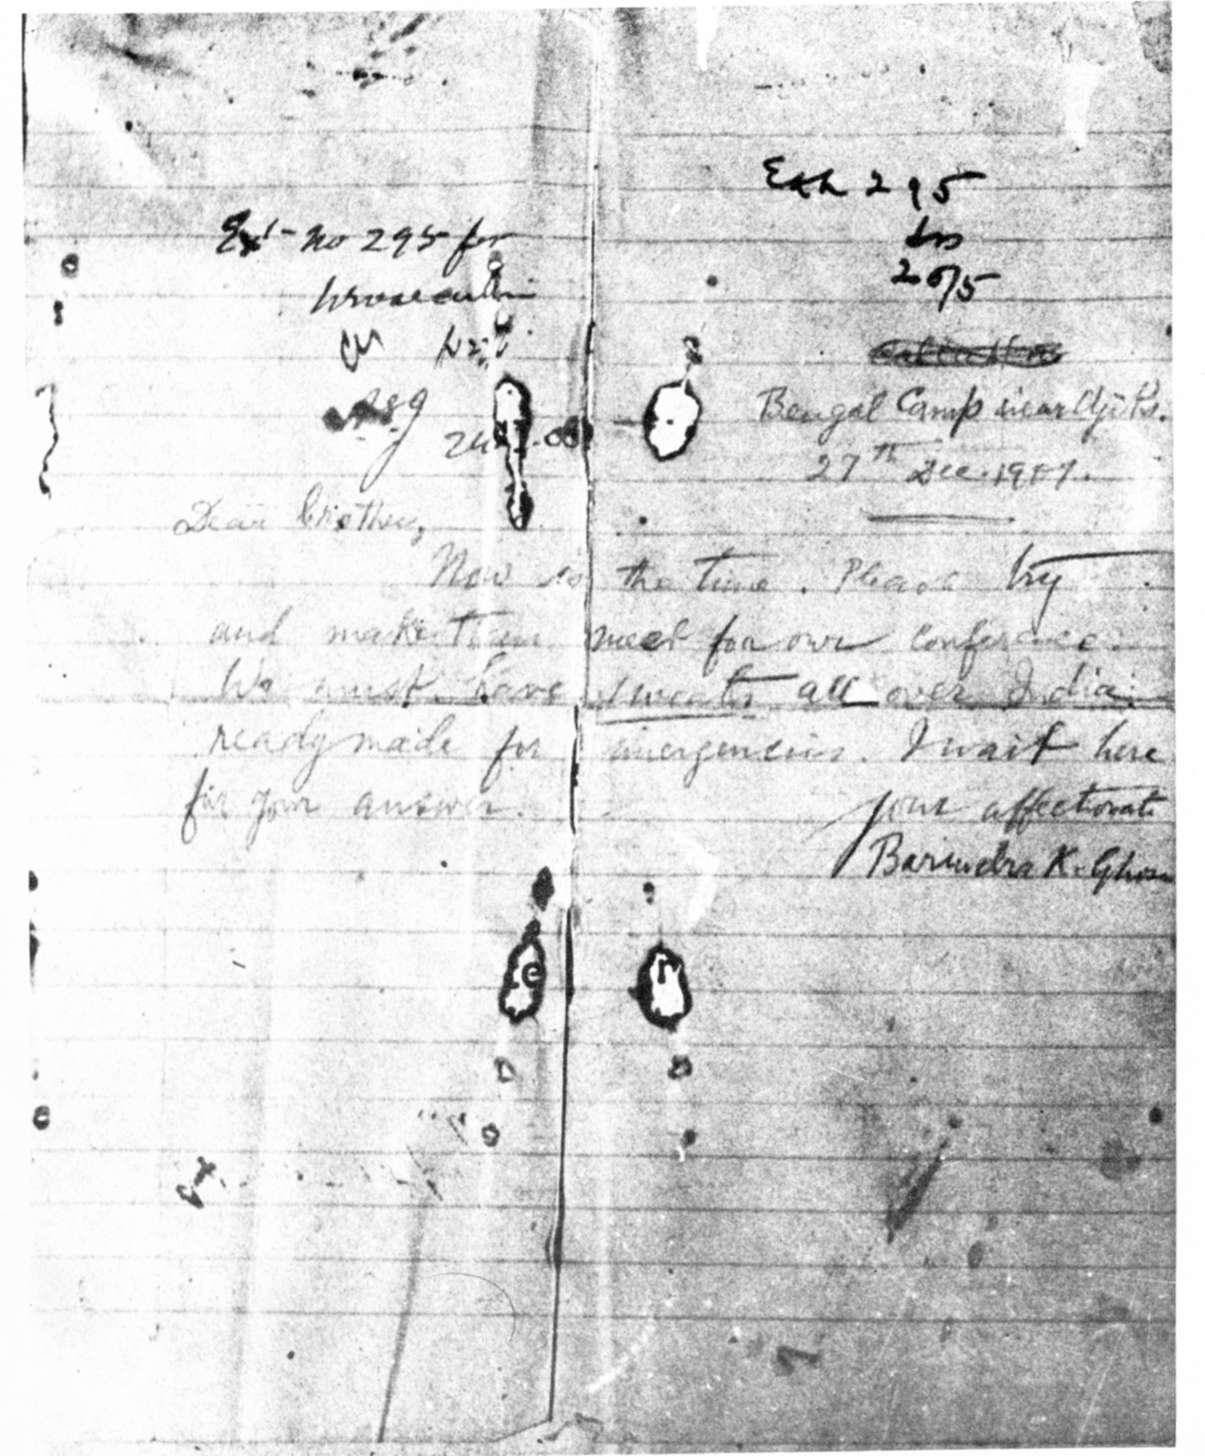 Exh 295
2675
Ext- No 295 for
prosecution
Calcutta
Bengal Camp near Ajit's.
27th Dec. 1907.
Dear brother,
Now is the time. Please try
and make them meet for our conference.
We must have sweets all over India
readymade for emergencies. I wait here
for your answer.
your affectionate
Barindra K. Ghose